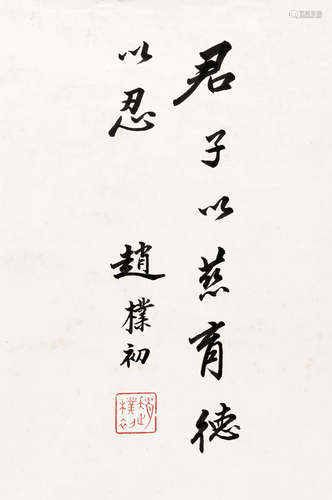 君子以慈育德
以忍
趙樸初
趙樸初